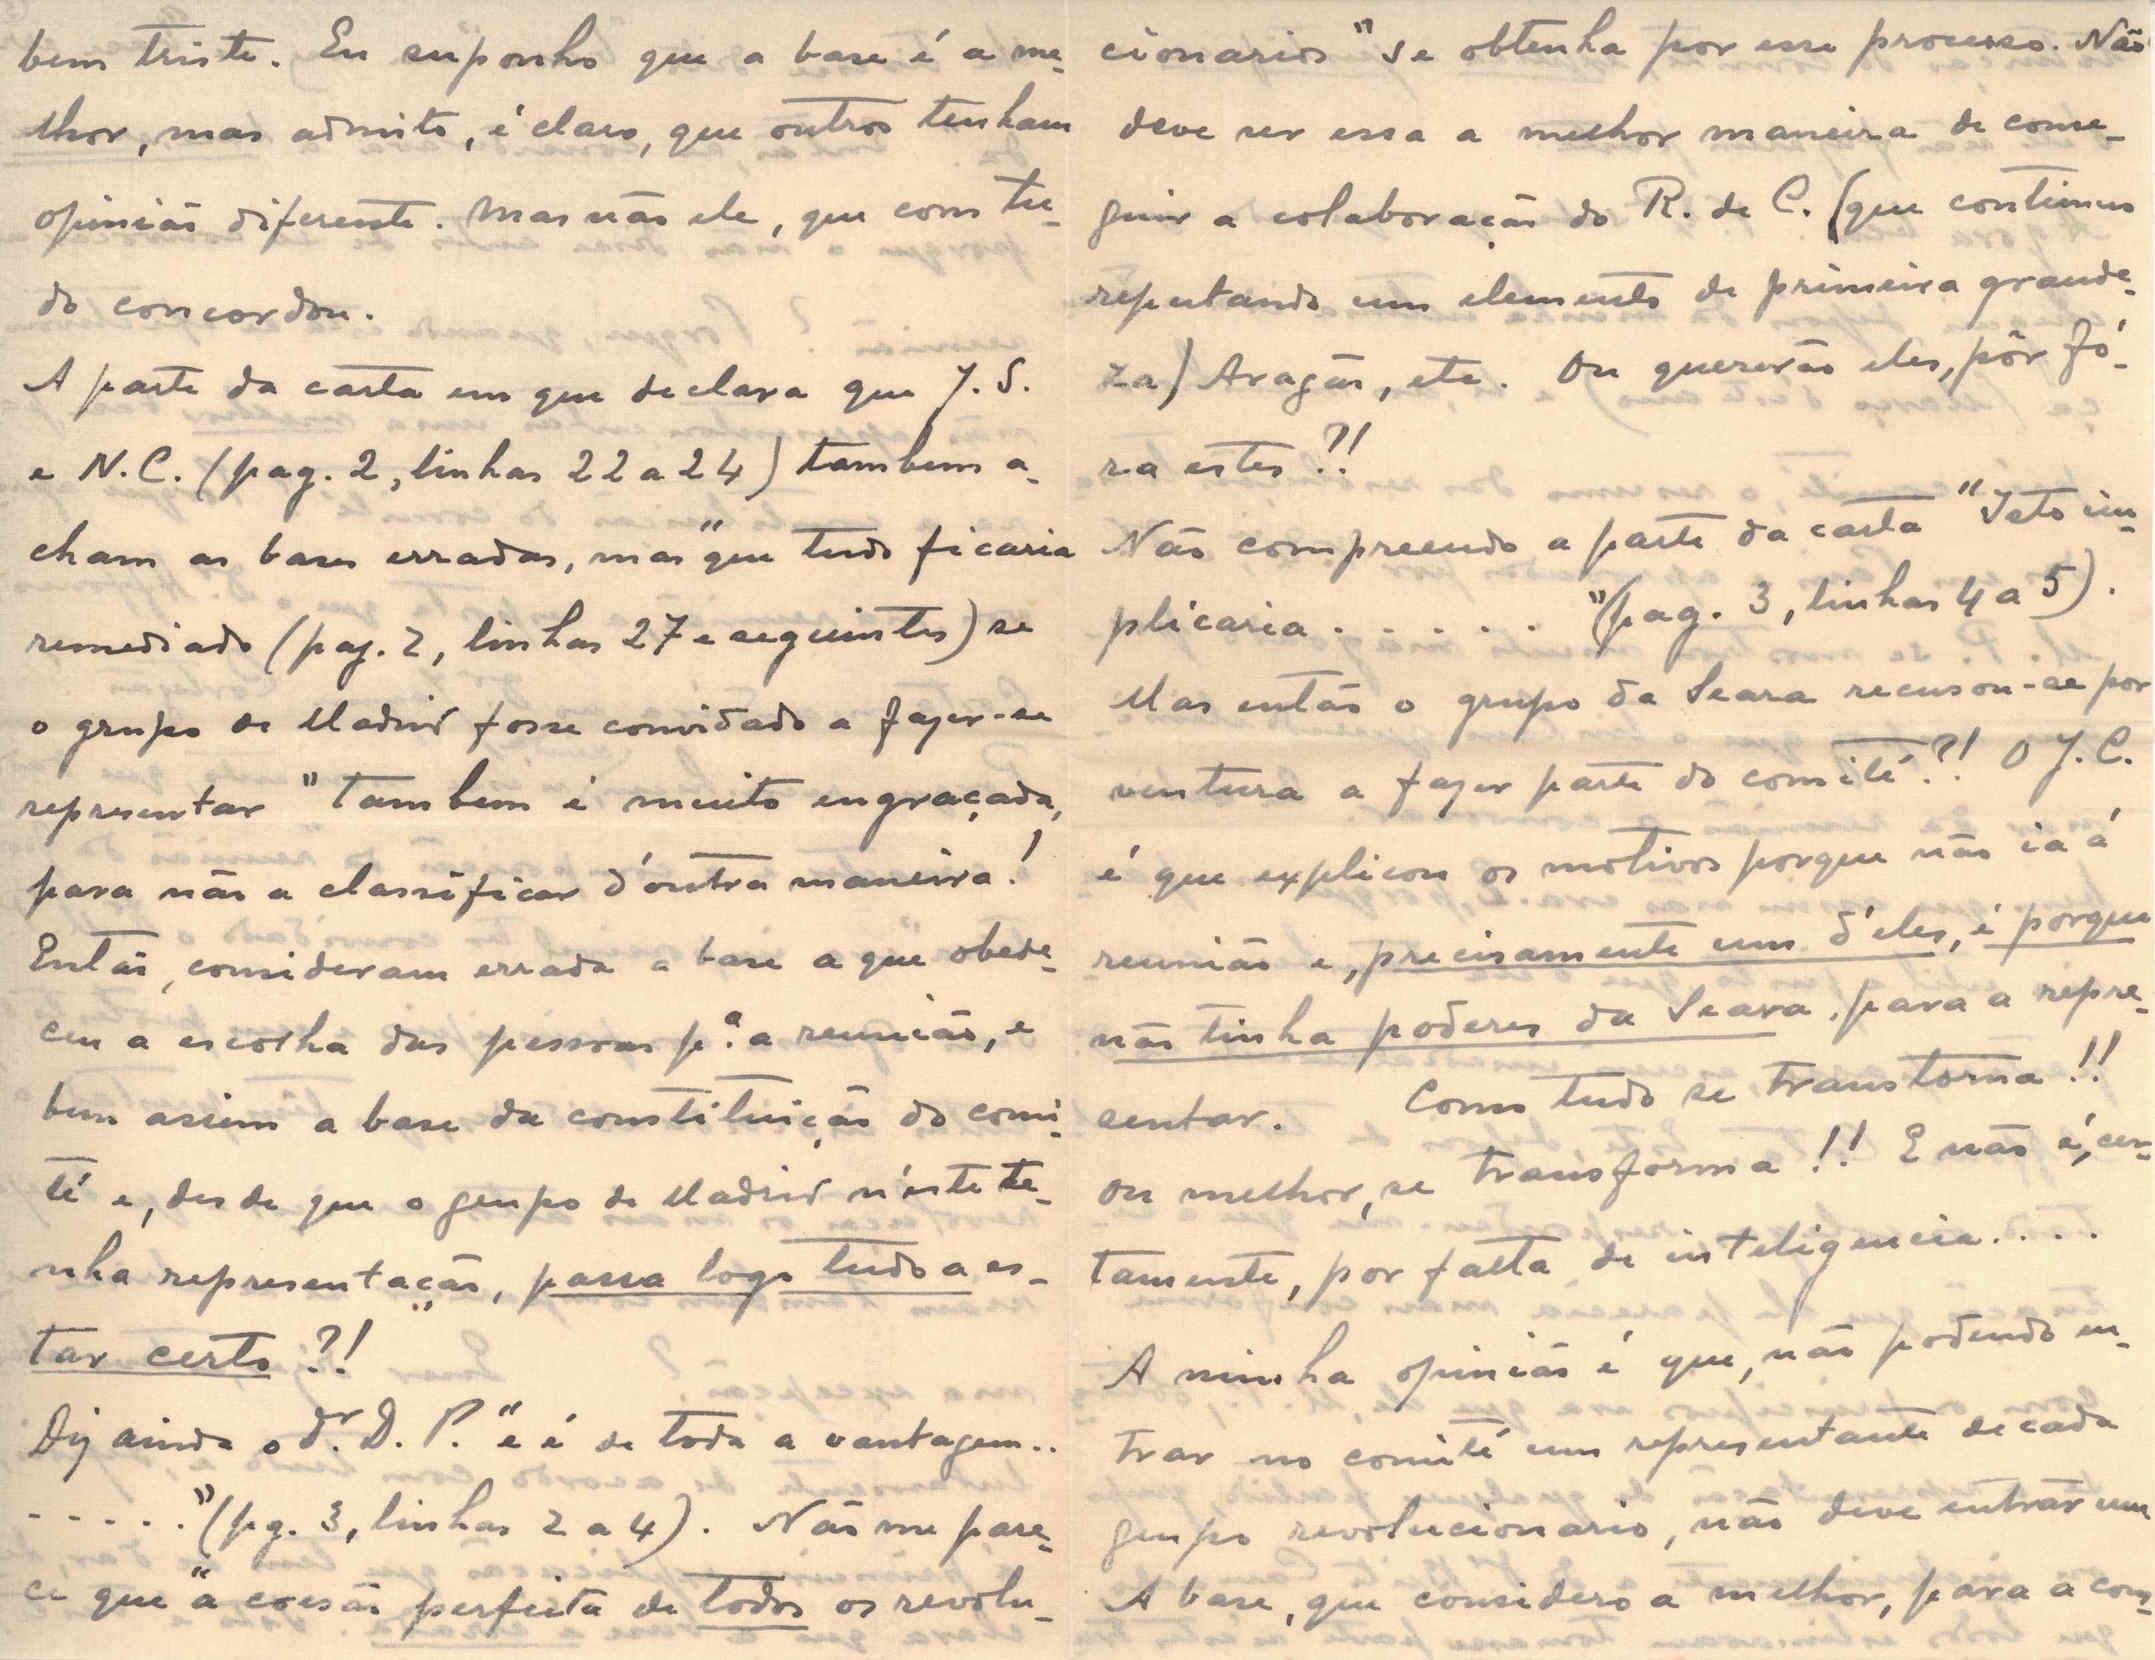 bem triste. Eu suponho que a base é a me-
lhor, mas admito, é claro, que outros tenham
opinião diferente. Mas não ele, que com tu-
do concordou.
A parte da carta em que declara que J. S.
e N. C. (pag. 2, linhas 22 a 24) tambem a-
cham as bases erradas, mas "que tudo ficaria
remediado (pag. 2, linhas 27 e seguintes) se
o grupo de Madrid fosse convidado a fazer-se
representar" tambem é muito engraçada,
para não a classificar d'outra maneira!
Então, consideram errada a base a que obede-
ceu a escolha das pessoas p.ª a reunião, e
bem assim a base da constituição do comi-
té e, desde que o grupo de Madrid n'este te-
nha representação, passa logo tudo a es-
tar certo?!
Diz ainda o dr. D. P. "e é de toda a vantagem..
. . . . ." (pg. 3, linhas 2 a 4). Não me pare-
ce que "a coesão perfeita de todos os revolu-
cionarios" se obtenha por esse processo. Não
deve ser essa a melhor maneira de conse-
guir a colaboração do R. de C. (que continuo
reputando um elemento de primeira grande-
za) Aragão, etc. Ou quererão eles, pôr fó-
ra estes?!
Não compreendo a parte da carta "Isto im-
plicaria . . . . . ." (pag. 3, linhas 4 a 5).
Mas então o grupo da Seara recusou-se por
ventura a fazer parte do comité?! O J. C.
é que explicou os motivos porque não ia á
reunião e, precisamente um d'eles, é porque
não tinha poderes da Seara, para a repre-
sentar. Como tudo se transtorna!!
ou melhor, se transforma!! E não é, cer-
tamente, por falta de inteligencia....
A minha opinião é que, não podendo en-
trar no comité um representante de cada
grupo revolucionario, não deve entrar um
A base, que considero a melhor, para a cons-